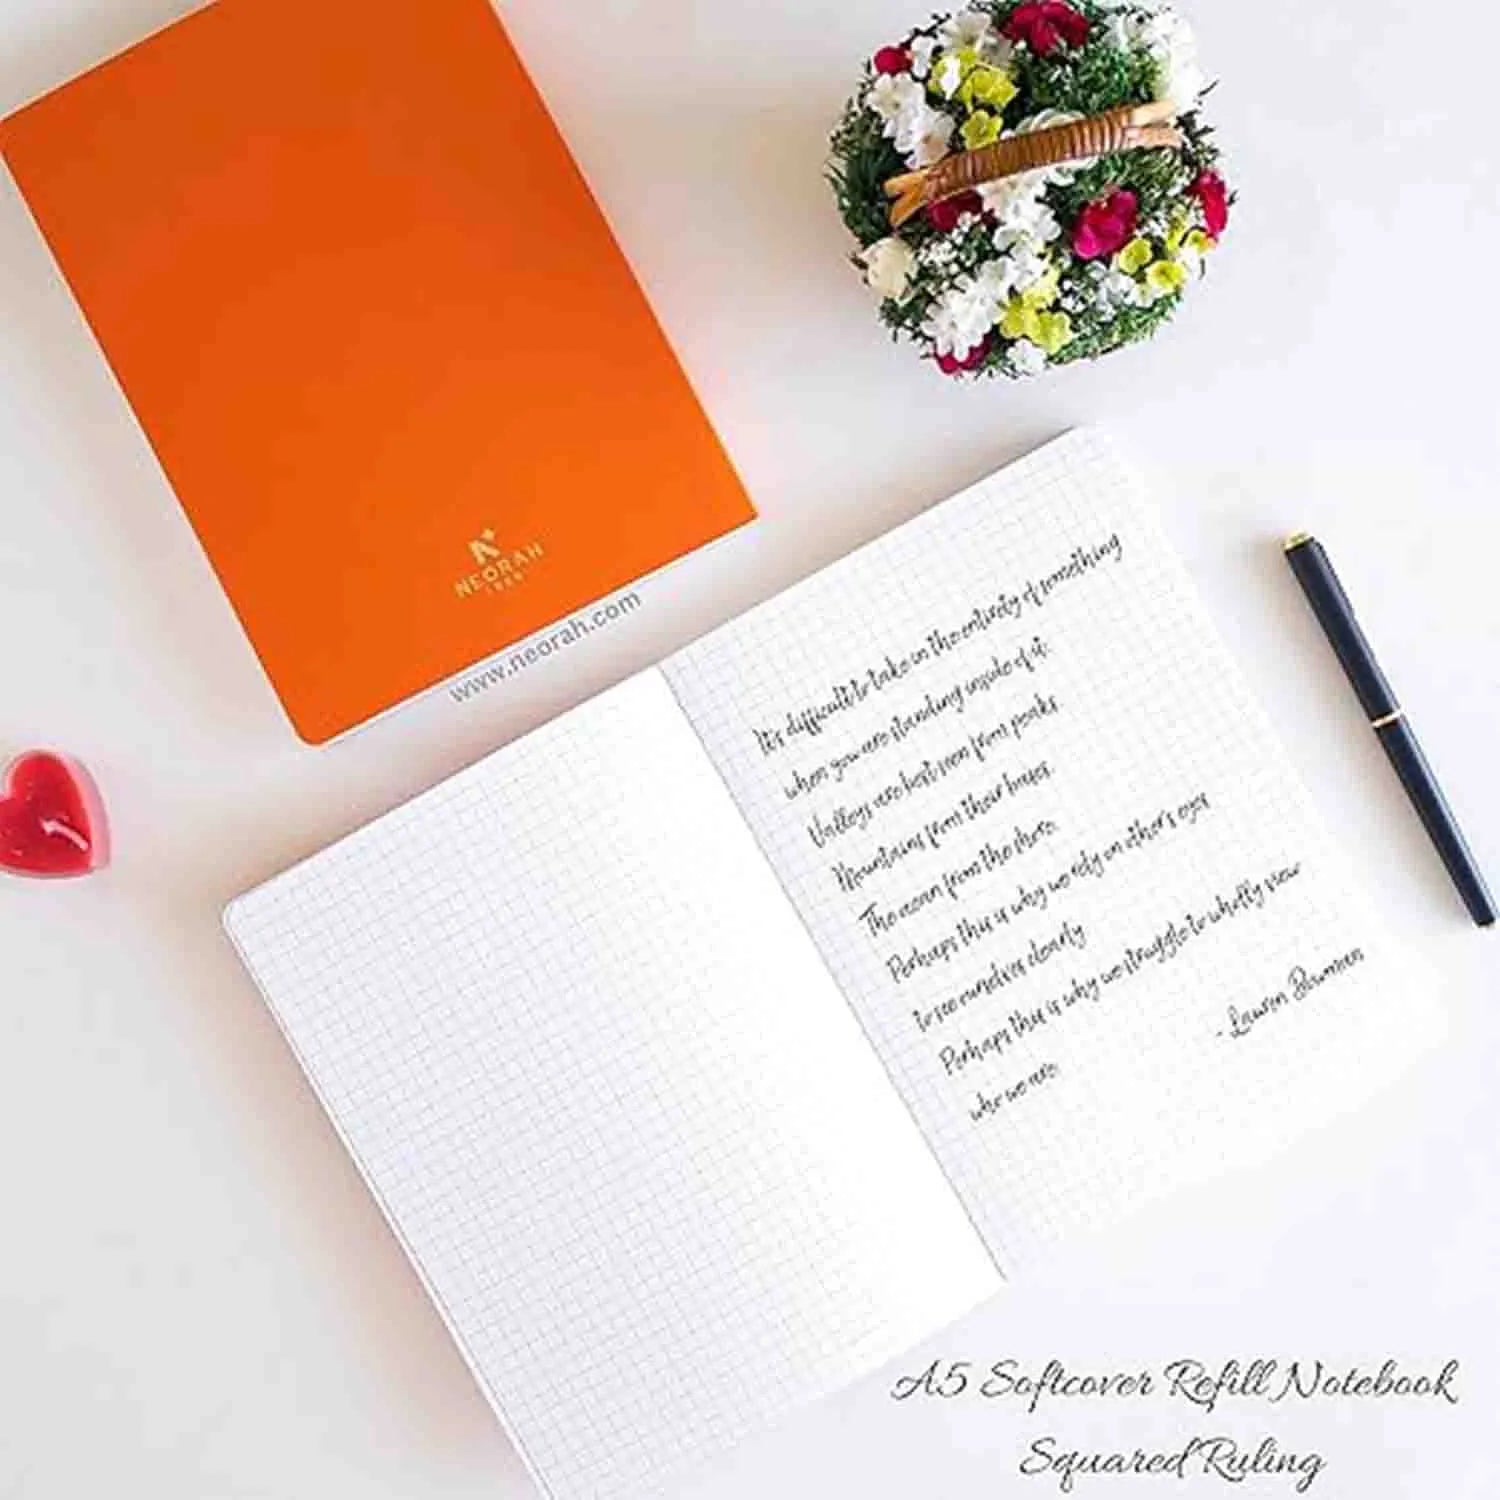 NEORAH
www.neorah.com
It's difficult to take in the entirety of something
when you are standing inside of it.
Valleys are best seen from peaks
Mountains from their bases.
The ocean from the shore.
Perhaps this is why we rely on other's eyes
to see ourselves clearly
Perhaps this is why we struggle to wholly view
who we are.
- Lauren Bowman
A5 Softcover Refill Notebook
Squared Ruling